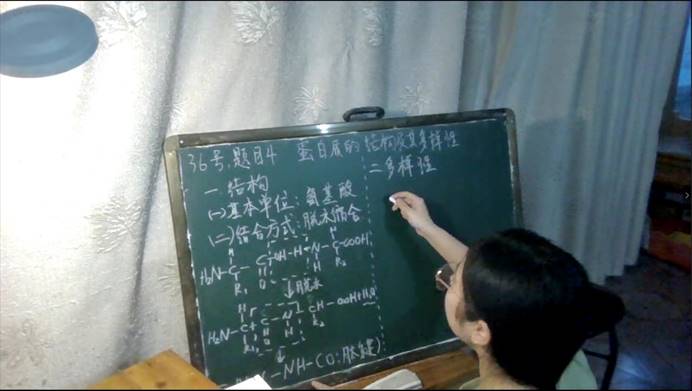 36号,题目4 蛋白质的结构及其多样性
一.结构
(一)基本单位:氨基酸
(二)结合方式:脱水缩合
H H
H₂N-C-C-OH-H-N-C-COOH
R₁ O H R₂
↓脱水
H₂N-C-C-N-CH-COOH+H₂O
R₁ O H R₂
-NH-CO:肽键)
二.多样性